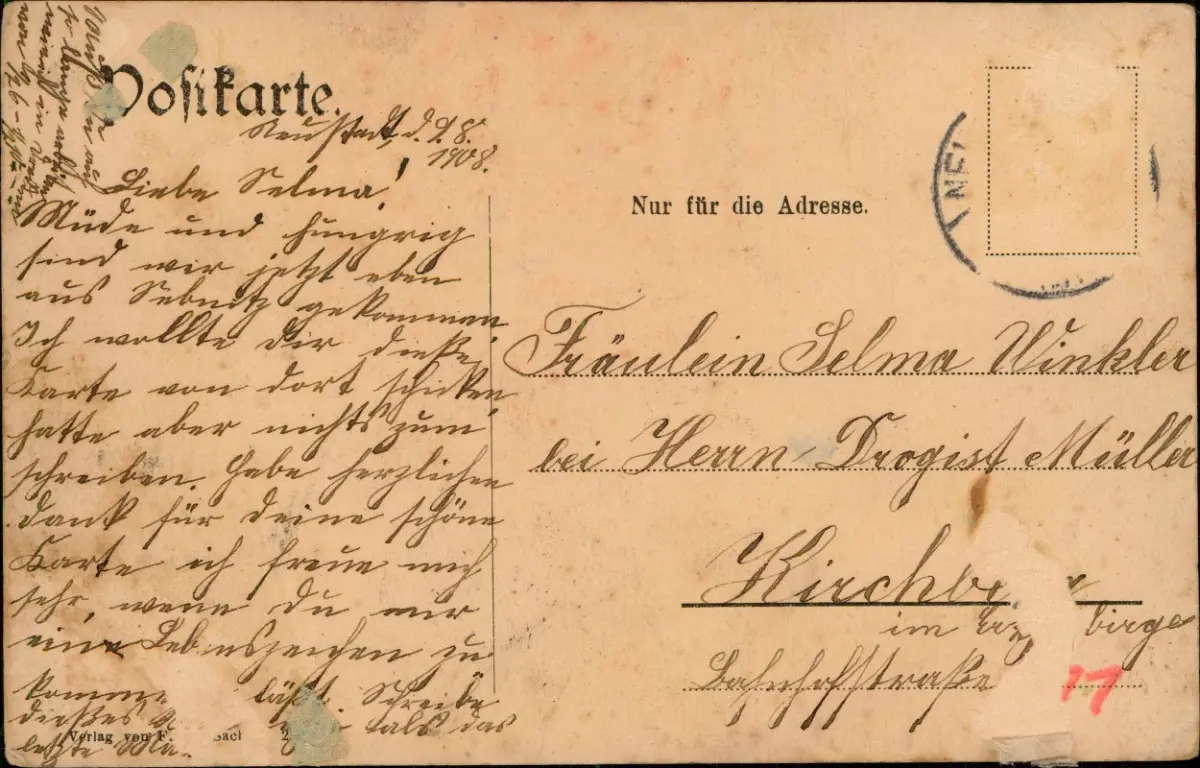 Postkarte.
Neustadt, d. 2.8.
1908.
Liebe Selma!
Müde und hungrig
sind wir jetzt eben
aus Sebnitz gekommen.
Ich wollte Dir diese
Karte von dort schicken,
hatte aber nichts zum
schreiben. Habe herzlichen
Dank für Deine schöne
Karte ich freue mich
sehr, wenn Du mir
eine Lebenszeichen zu
komme läßt. Schreibe
dießes als das
letzte Ma
Verlag von F.
Nur für die Adresse.
NE
Fräulein Selma Winkler
bei Herrn Drogist Müller
Kirchbe
im Erzgebirge
Bahnhofstraße
17